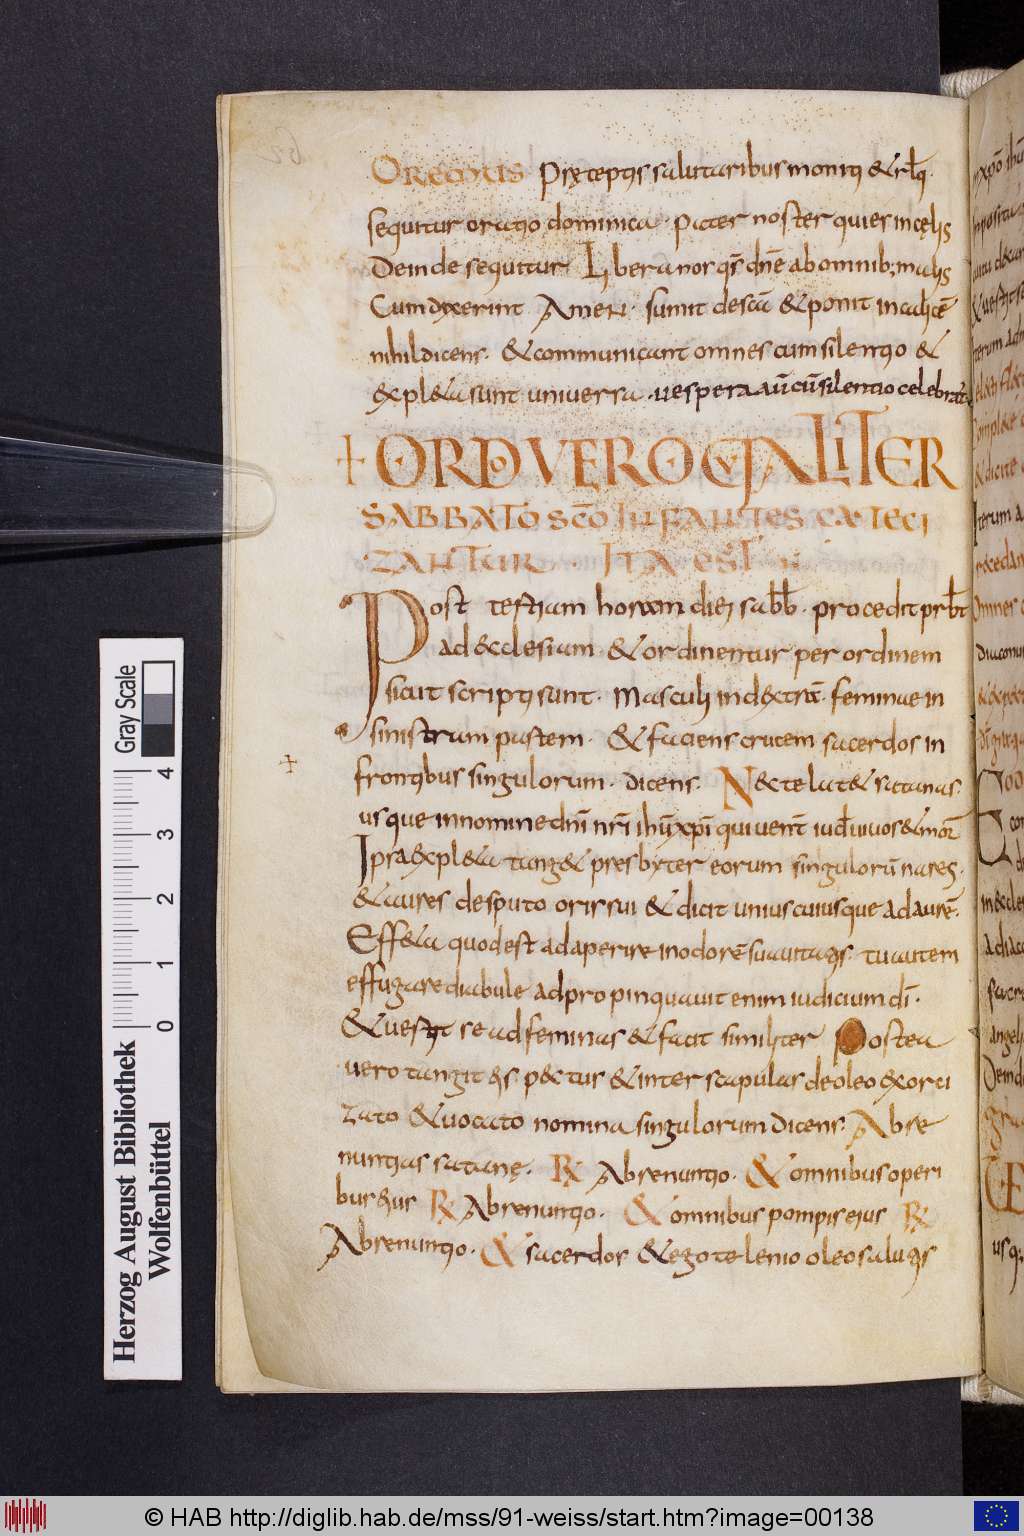 OREMUS preceptis salutaribus moniti & rlq.
sequitur oratio dominica. pater noster qui es in cęlis
Deinde sequitur Libera nos qs dne ab omnib; malis
Cum dixerint Amen. sumit de scā & ponit in calicē
nihil dicens. & communicant omnes cum silentio &
expl&a sunt universa. vespera aūcū silentio celebrat
+ ORDO VERO QUALITER
SABBATO SCŌ INFANTES CATECI
ZANTUR. ITA EST
Post tertiam horam diei sabb. procedit prbt
ad ecclesiam & ordinentur per ordinem
sicut scripti sunt. Masculi in dextrā. feminae in
sinistram partem. & faciens crucem sacerdos in
frontibus singulorum. dicens. Nec te lat& satanas.
usque in nomine dni nri ihu xpi qui vent iud vivos & mor
Ipra expl&a tang& presbyter eorum singulorū nares.
& aures de sputo oris sui & dicit uniuscuiusque ad aurē.
Eff&a quod est adaperire in odorē suavitatis. tu autem
effugare diabule adpropinquavit enim iudicium di.
& vertit se ad feminas & facit similiter Postea
vero tangit eis pectus & inter scapulas de oleo exorci
zato & vocato nomina singulorum dicens. Abre
nuntias satanę. R Abrenuntio. & omnibus operi
bus eius R Abrenuntio. & omnibus pompis eius R
Abrenuntio. & sacerdos & ego te lenio oleo salutis
Gray Scale
4 3 2 1 0
Herzog August Bibliothek
Wolfenbüttel
© HAB http://diglib.hab.de/mss/91-weiss/start.htm?image=00138